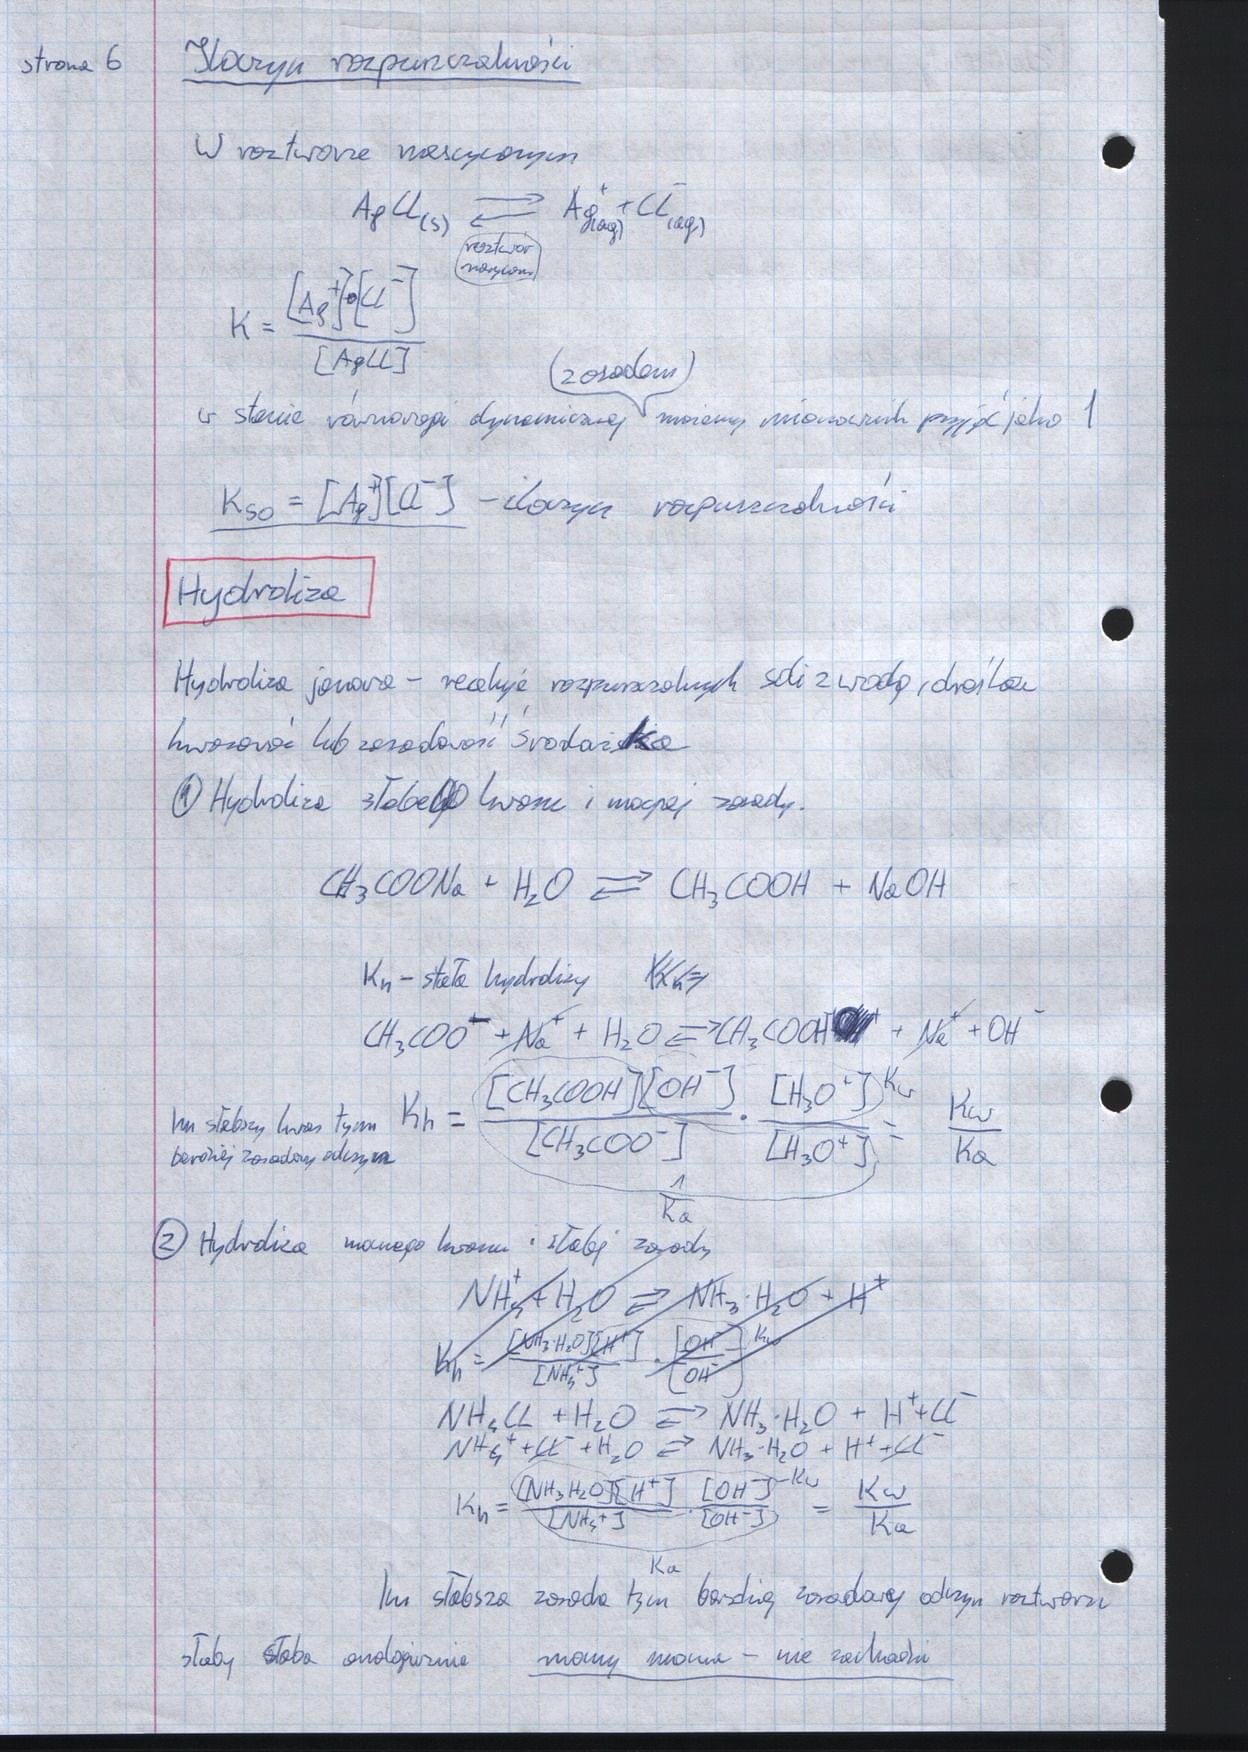 strona 6
Iloczyn rozpuszczalności
W roztworze nasyconym
AgCl(s) ⇌ Ag⁺(aq) + Cl⁻(aq)
roztwór
nasycony
K = [Ag⁺]·[Cl⁻] / [AgCl]
(zasadom)
w stanie równowagi dynamicznej możemy mianownik przyjąć jako 1
Kso = [Ag⁺][Cl⁻] – iloczyn rozpuszczalności
Hydroliza
Hydroliza jonowa – reakcja rozpuszczalnych soli z wodą,
kwasowość lub zasadowość środowiska
① Hydroliza słabego kwasu i mocnej zasady.
CH₃COONa + H₂O ⇌ CH₃COOH + NaOH
Kh – stała hydrolizy
CH₃COO⁻ + Na⁺ + H₂O ⇌ CH₃COOH + Na⁺ + OH⁻
Im słabszy kwas tym
bardziej zasadowy odczyn
Kh = [CH₃COOH][OH⁻] / [CH₃COO⁻] · [H₃O⁺] / [H₃O⁺] = Kw / Ka
Kw
1 / Ka
② Hydroliza mocnego kwasu i słabej zasady
NH₄⁺ + H₂O ⇌ NH₃·H₂O + H⁺
Kh = [NH₃·H₂O][H⁺] / [NH₄⁺] · [OH⁻] / [OH⁻] Kw
NH₄Cl + H₂O ⇌ NH₃·H₂O + H⁺ + Cl⁻
NH₄⁺ + Cl⁻ + H₂O ⇌ NH₃·H₂O + H⁺ + Cl⁻
Kh = [NH₃H₂O][H⁺] / [NH₄⁺] · [OH⁻] / [OH⁻] = Kw / Ka
Kw
Ka
Im słabsza zasada tym bardziej zasadowy odczyn roztworu
słaby słaba analogicznie mocny mocna – nie zachodzi